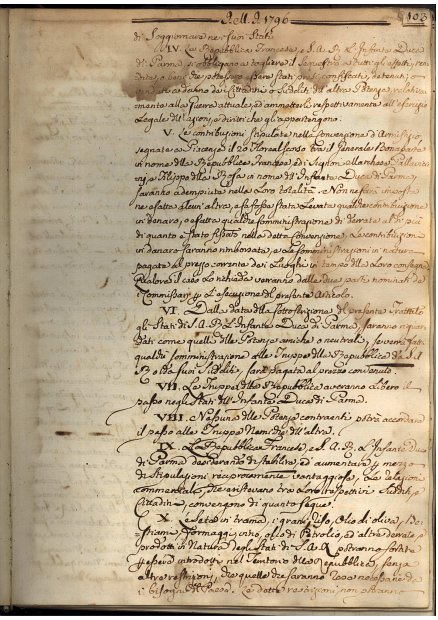 Nell' A. 1796
103
di Soggiornare ne suoi Stati.
IV. La Repubblica Francese, e S. A. R. l'Infante Duca
di Parma, si obbligano a togliere il sequestro a tutti gli effetti, ren-
dite, o beni che potessero essere stati presi, confiscati, detenuti, o
venduti a danno dei Cittadini o Sudditi dell'altra Potenza, relativa-
mente alla guerra attuale, ed ammetterli respettivamente all'esercizio
legale dell'azioni, e diritti che gli appartengono.
V. Le contribuzioni stipulate nella Convenzione d'Armistizio
segnata a Piacenza il 20 Floreal scorso tra il Generale Bonaparte
in nome della Repubblica Francese, ed i Signori Marchesi Pallavici-
ni, e Filippo dalla Rosa in nome dell'Infante Duca di Parma,
saranno adempiute nella loro totalità. Non ne sarà imposta
ne esatta alcun'altra, e se fosse stata levata qualche contribuzione
in denaro, o fatta qualche somministrazione di derrate al di più
di quanto è stato fissato nella detta Convenzione, le contribuzioni
in danaro saranno rimborsate, e le somministrazioni in natura
pagate al prezzo corrente dei Luoghi in tempo della loro consegna.
Qualora il caso lo richieda verranno dalle due parti nominati dei
Commissarj per l'esecuzione del presente Articolo.
VI. Dalla data della sottoscrizione del presente Trattato
gli Stati di S. A. R. l'Infante Duca di Parma, saranno riguar-
dati come quelli delle Potenze amiche o neutrali, se verrà fatta
qualche somministrazione alle Truppe della Repubblica da S. A.
R. o da suoi Sudditi, sarà pagata al prezzo convenuto.
VII. Le Truppe della Repubblica averanno libero il
passo negli Stati dell'Infante Duca di Parma.
VIII. Nessuna delle Potenze contraenti potrà accordare
il passo alle Truppe Nemiche dell'altra.
IX. La Repubblica Francese, e S. A. R. l'Infante Duca
di Parma desiderando di stabilire, ed aumentare per mezzo
di stipulazioni reciprocamente vantaggiose, le relazioni
commerciali, che esistevano tra i loro respettivi Sudditi, e
Cittadini, convengono di quanto segue.
X. Le Sete in trama, i grani, riso, Olio di oliva, Be-
stiami, Formaggi, vino, olio di Petrolio, ed altre derrate e
prodotti in Natura degli Stati di S. A. R. potranno sortire
per essere introdotti nel Territorio della Repubblica, senza
altre restrizioni, che quelle che saranno rese necessarie da
i bisogni del Paese. Le dette restrizioni non potranno